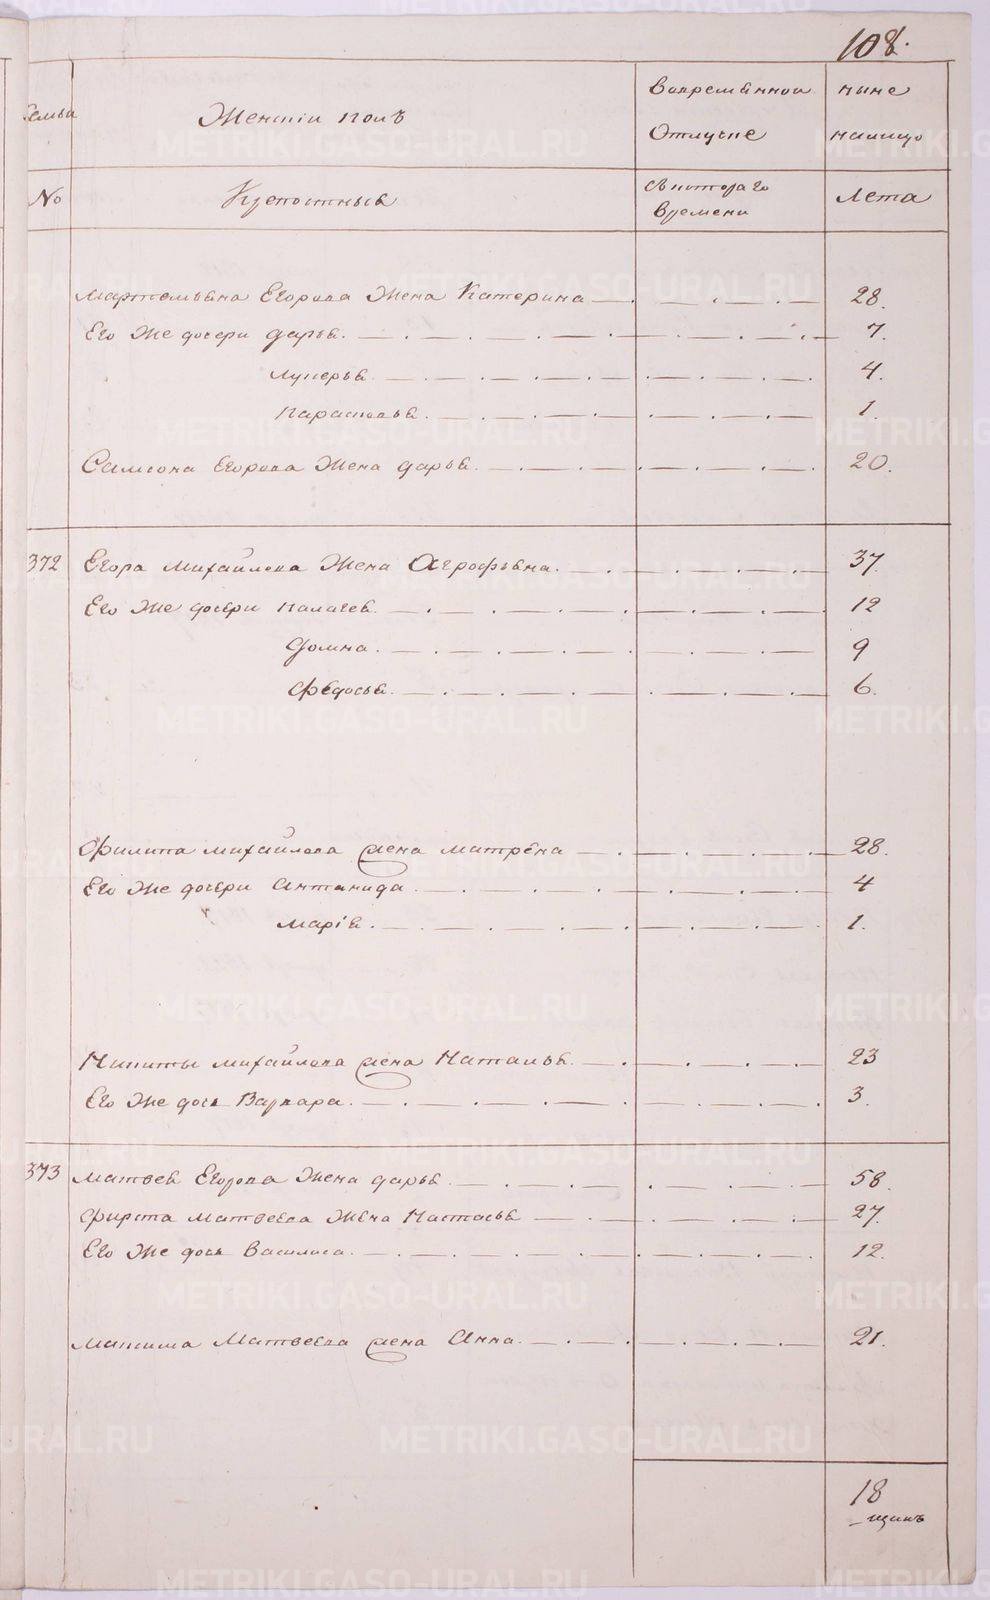 108.
Семьи
Женскій полъ
Вовременной
ныне
Отлучке
налицо
No
Крепостныя
Съ котораго
Времени
Лета
Мартемьяна Егорова Жена Катерина 28.
Его Же дочери дарья. 7.
Лукерья. 4.
Парасковья. 1.
Самсона Егорова Жена дарья. 20.
372 Егора михайлова Жена Аграфьена. 37.
Его Же дочери палагея. 12
Домна. 9
Федосья. 6.
Филипа михайлова жена матрена 28.
Его Же дочери Антанида. 4
Марія. 1.
Никиты михайлова жена Наталья. 23
Его Же дочь Варвара. 3.
373 Матвея Егорова Жена дарья. 58.
Фирста Матвеева Жена Настасья 27.
Его Же дочь Василиса. 12.
Максима Матвеева жена Анна. 21.
18
METRIKI.GASO-URAL.RU